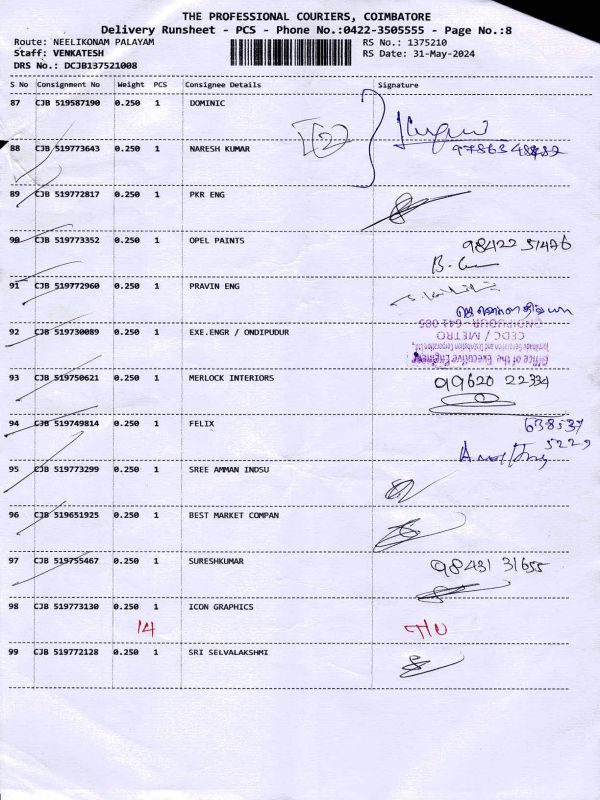 THE PROFESSIONAL COURIERS, COIMBATORE
Delivery Runsheet - PCS - Phone No.:0422-3505555 - Page No.:8
Route: NEELIKONAM PALAYAM RS No.: 1375210
Staff: VENKATESH RS Date: 31-May-2024
DRS No.: DCJB137521008
S No Consignment No Weight PCS Consignee Details Signature
87 CJB 519587190 0.250 1 DOMINIC
88 CJB 519773643 0.250 1 NARESH KUMAR
89 CJB 519772817 0.250 1 PKR ENG
90 CJB 519773352 0.250 1 OPEL PAINTS
98422 51476
91 CJB 519772960 0.250 1 PRAVIN ENG
92 CJB 519730089 0.250 1 EXE.ENGR / ONDIPUDUR
ONDIPUDUR - 641 005
CEDC / METRO
Office of the Executive Engineer
93 CJB 519750621 0.250 1 MERLOCK INTERIORS 99620 22334
94 CJB 519749814 0.250 1 FELIX 638537
5229
95 CJB 519773299 0.250 1 SREE AMMAN INDSU
96 CJB 519651925 0.250 1 BEST MARKET COMPAN
97 CJB 519755467 0.250 1 SURESHKUMAR 98431 31655
98 CJB 519773130 0.250 1 ICON GRAPHICS
14
99 CJB 519772128 0.250 1 SRI SELVALAKSHMI